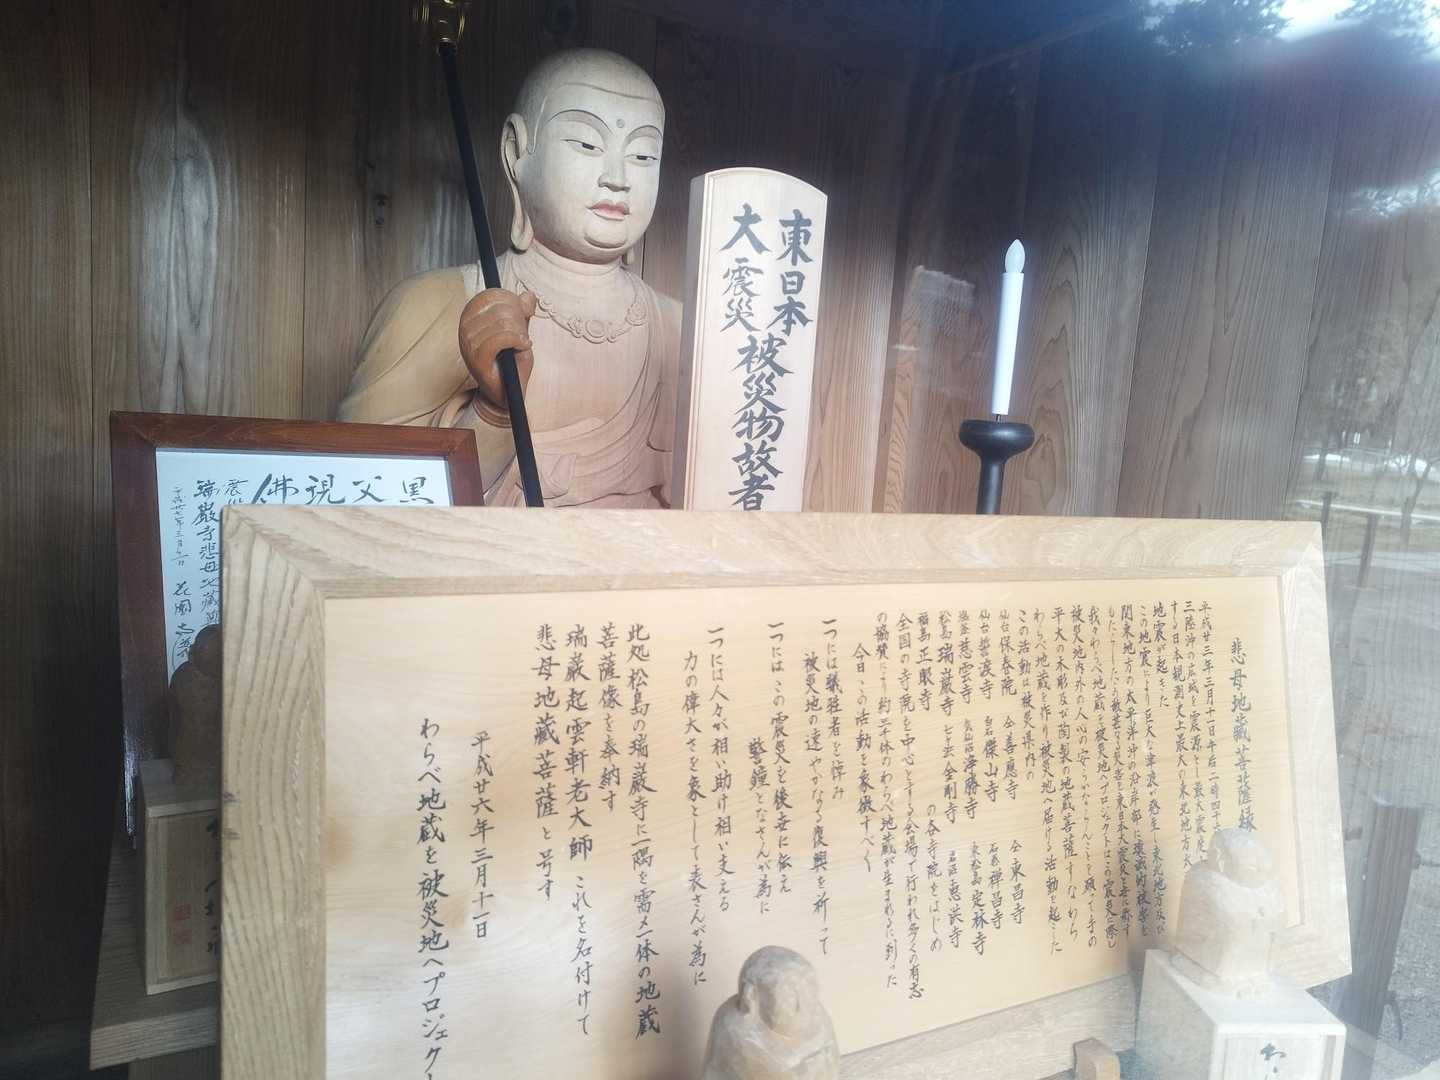 東日本
大震災
被災物故者
黒父現佛
瑞巌寺悲母地蔵
悲母地蔵菩薩縁
平成廿三年三月十一日午后二時四十
三陸沖の広域を震源とし最大震度
する日本観測史上最大の東北地方太
地震が起きた
この地震により巨大な津波が発生し東北地方及び
関東地方の太平洋沖の沿岸部に壊滅的被害を
我々わらべ地蔵を被災地へプロジェクトはこの震災に際し
被災地内外の人心の安らかならんことを願って手の
平大の木彫及び陶製の地蔵菩薩すなわち
わらべ地蔵を作り被災地へ届ける活動を起こした
この活動は被災県内の
仙台 保春院 仝 善應寺 仝 東昌寺
仙台 誓渡寺 白石 傑山寺 石巻 禅昌寺
塩釜 慈雲寺 気仙沼 浄勝寺 東松島 定林寺
松島 瑞巌寺 七ヶ宿 金剛寺 岩沼 恵洪寺
福島 正眼寺 の各寺院をはじめ
全国の寺院を中心とする会場で行われ多くの有志
の協賛により約三千体のわらべ地蔵が生まれるに到った
今日この活動を象徴すべく
一つには犠牲者を悼み
被災地の速やかなる復興を祈って
一つにはこの震災を後世に伝え
警鐘となさんが為に
一つには人々が相い助け相い支える
力の偉大さを象として表さんが為に
此処松島の瑞巌寺に一隅を需メ一体の地蔵
菩薩像を奉納す
瑞巌起雲軒老大師 これを名付けて
悲母地蔵菩薩と号す
平成廿六年三月十一日
わらべ地蔵を被災地へプロジェクト